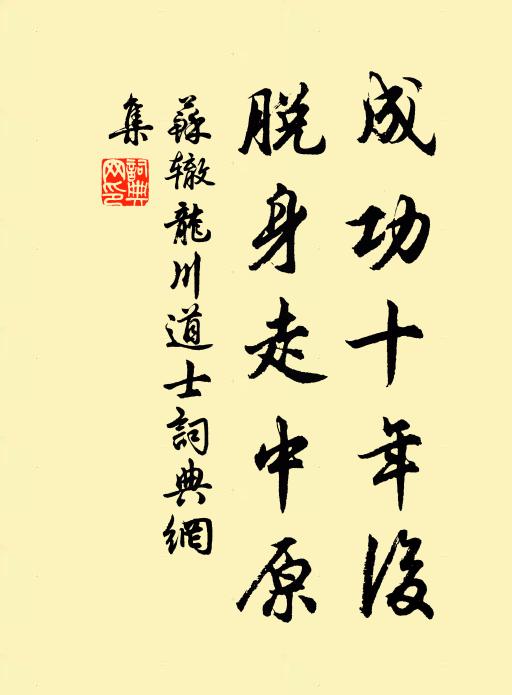 成功十年後
脫身走中原
蘇辙龍川道士詞典網
集
詞典
网印